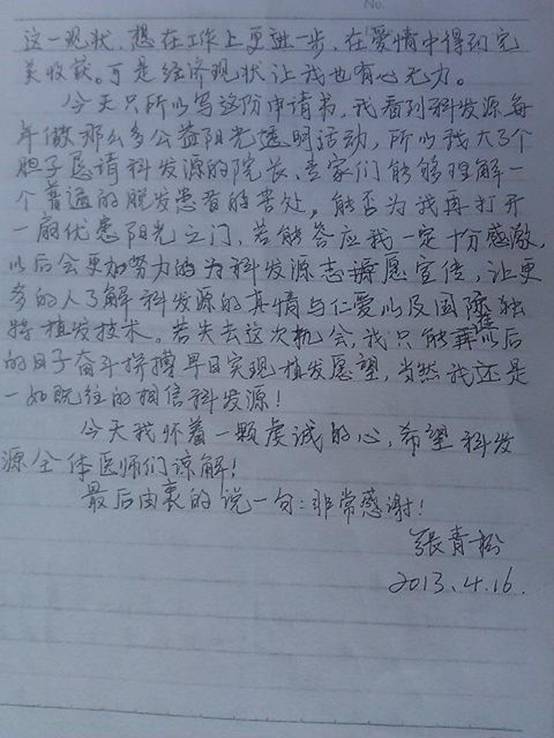 No.
这一现状，想在工作上更进一步，在爱情中得到完
美收获。可是经济现状让我也有心无力。
今天只所以写这份申请书，我看到科发源每
年做那么多公益阳光透明活动，所以我大了个
胆子恳请科发源的院长、专家们能够理解一
个普通的脱发患者的苦处，能否为我再打开
一扇优惠阳光之门，若能答应我一定十分感激，
以后会更加努力的为科发源志愿宣传，让更
多的人了解科发源的真情与仁爱以及国际独
特植发技术。若失去这次机会，我只能在以后
的日子奋斗拼搏早日实现植发愿望，当然我还是
一如既往的相信科发源！
今天我怀着一颗虔诚的心，希望科发
源全体医师们谅解！
最后由衷的说一句：非常感谢！
张青松
2013.4.16.